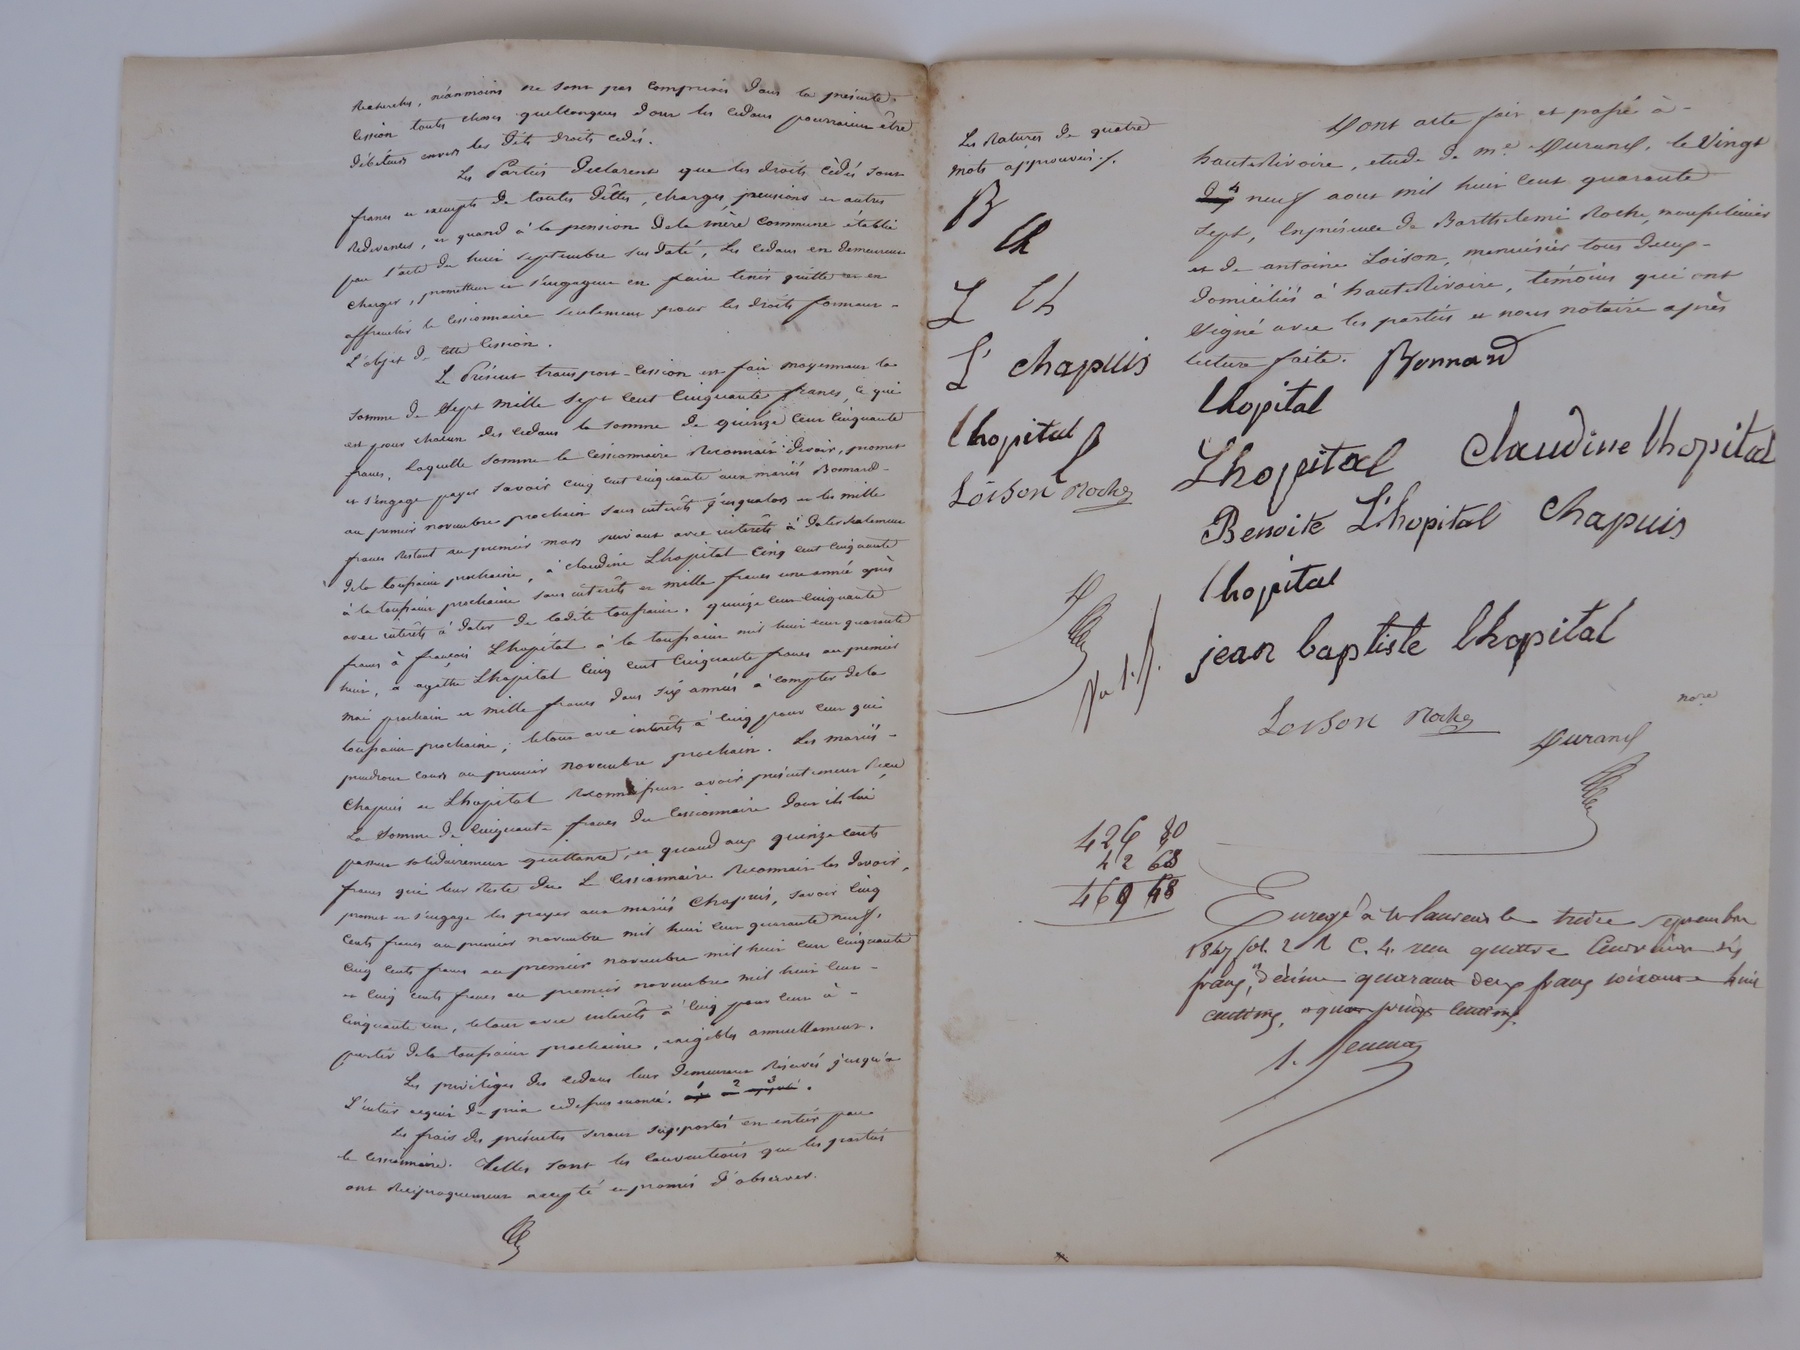 néanmoins ne sont pas comprises dans la présente
cession toutes choses quelconques dont les cédans pourraient être
débiteurs envers les dits droits cédés.
Les Parties Déclarent que les droits cédés sont
francs et exempts de toutes dettes, charges, pensions et autres
Redevances, et quand à la pension de la mère commune établie
par l'acte du huit septembre sus daté, les cédans en demeurent
chargés, promettent et s'engagent en faire tenir quitte et en
affranchir le cessionnaire seulement pour les droits formant
L'objet de cette cession.
Le Présent transport-cession est fait moyennant la
somme de Sept mille sept cent cinquante francs, ce qui
est pour chacun des cédans la somme de quinze cent cinquante
francs, Laquelle somme le cessionnaire Reconnait devoir, promet
et s'engage payer savoir cinq cent cinquante aux mariés Bonnard
au premier novembre prochain sans intérêts jusqualors et les mille
francs Restant au premier mars suivant avec intérêts à dater seulement
de la toussaint prochaine, à claudine Lhopital cinq cent cinquante
à la toussaint prochaine sans intérêts et mille francs une année après
avec intérêts à dater de ladite toussaint, quinze cent cinquante
francs à françois Lhopital à la toussaint mil huit cent quarante
huit, à agathe Lhopital cinq cent cinquante francs au premier
mai prochain et mille francs dans six années à compter de la
toussaint prochaine; letout avec intérêts à cinq pour cent qui
prendront cours au premier novembre prochain. Les mariés
Chapuis et Lhopital Reconnaissent avoir présentement Reçu
La somme de cinquante francs du cessionnaire dont ils lui
passent solidairement quittance, et quand aux quinze cents
francs qui leur Reste dus Le cessionnaire Reconnait les devoir,
promet et s'engage les payer aux mariés Chapuis, savoir cinq
cents francs au premier novembre mil huit cent quarante neuf,
cinq cents francs au premier novembre mil huit cent cinquante
et cinq cents francs au premier novembre mil huit cent
cinquante un, letout avec intérêts à cinq pour cent à
partir de la toussaint prochaine, exigibles annuellement.
Les privilèges des cédans leur demeurent Réservés jusqu'à
L'entier acquit du prix cidessus énoncé.
Les frais des présentes seront supportés en entier par
le cessionnaire. Telles sont les conventions que les parties
ont Réciproquement accepté et promis d'observer.
Les Ratures de quatre
mots approuvées.
B
Ch
L Lh
L' chapuis
lhopital B
Loison Roche
Dont acte fait et passé à
hauteRivoire, etude de me Durand, le Vingt
neuf aout mil huit cent quarante
sept, En présence de Barthelemi Roche,
et de antoine Loison, menuisier tous deux
domiciliés à hauteRivoire, témoins qui ont
Signé avec les parties et nous notaire après
lecture faite. Bonnard
lhopital
Lhopital claudine lhopital
Benoite L'hopital Chapuis
lhopital
jean baptiste lhopital
Loison Roche
Durand nore
426 80
42 68
469 48
Enregé à St laurent le treize septembre
1847 fol. 21 C. 4. reçu quatre cent vingt six
francs, décime quarante deux francs soixante huit
centimes.